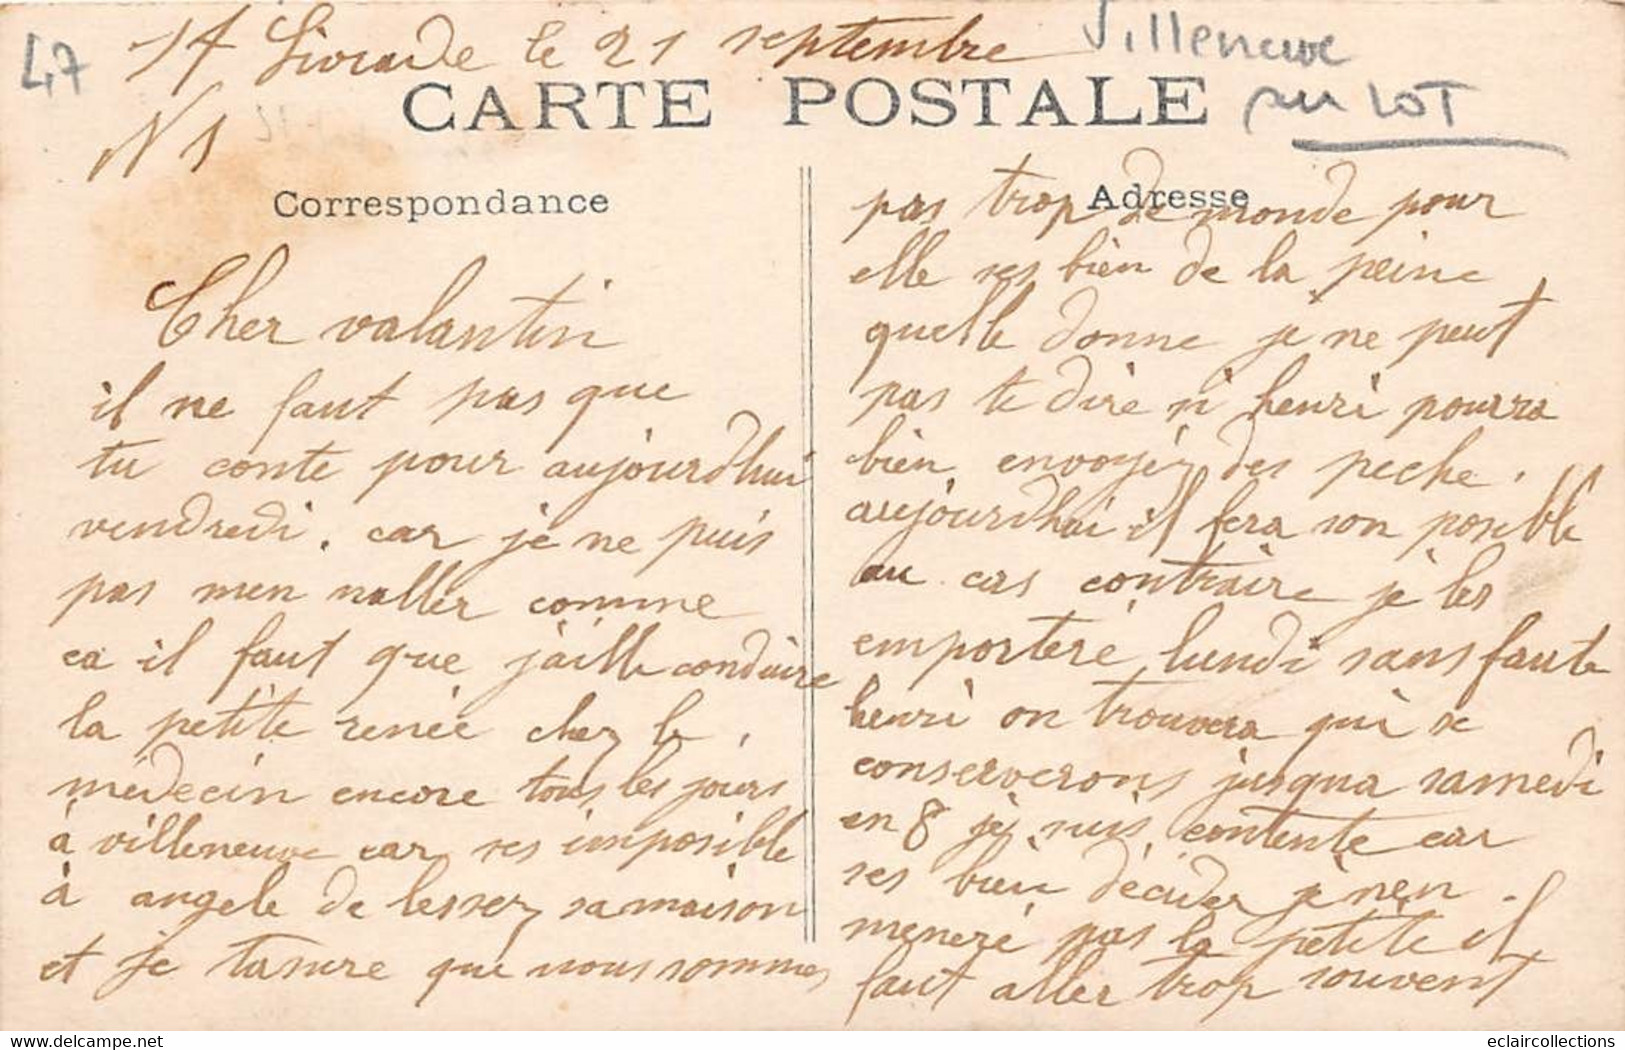 47
St Livrade le 21 septembre
Villeneuve
sur LOT
CARTE POSTALE
N 1
Correspondance
Adresse
Cher valantin
il ne faut pas que
tu conte pour aujourdhui
vendredi. car je ne puis
pas men naller comme
ca il faut que jaille conduire
la petite renée chez le
médecin encore tous les jours
à villeneuve car ses imposible
à angele de lesser sa maison
et je tasure que nous sommes
pas trop de monde pour
elle ses bien de la peine
quelle donne je ne peut
pas te dire si henri pourra
bien envoyér des peche.
aujourdhui il fera son posible
au cas contraire je les
emporteré lundi sans faute
henri on trouvera qui se
conserverons jusqua samedi
en 8 je suis contente car
ses bien décider je nen
meneré pas la petite il
faut aller trop souvent
eclaircollections
www.delcampe.net